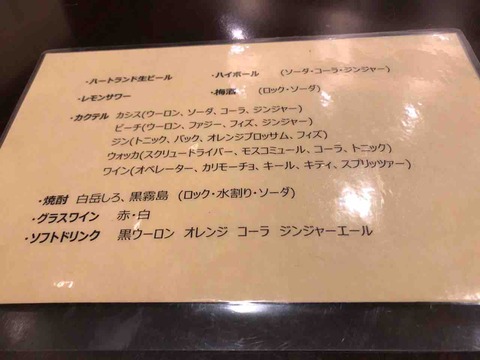 ・ハートランド生ビール ・ハイボール (ソーダ・コーラ・ジンジャー)
・レモンサワー ・梅酒 (ロック・ソーダ)
・カクテル カシス(ウーロン、ソーダ、コーラ、ジンジャー)
ピーチ(ウーロン、ファジー、フィズ、ジンジャー)
ジン(トニック、バック、オレンジブロッサム、フィズ)
ウォッカ(スクリュードライバー、モスコミュール、コーラ、トニック)
ワイン(オペレーター、カリモーチョ、キール、キティ、スプリッツァー)
・焼酎 白岳しろ、黒霧島 (ロック・水割り・ソーダ)
・グラスワイン 赤・白
・ソフトドリンク 黒ウーロン オレンジ コーラ ジンジャーエール